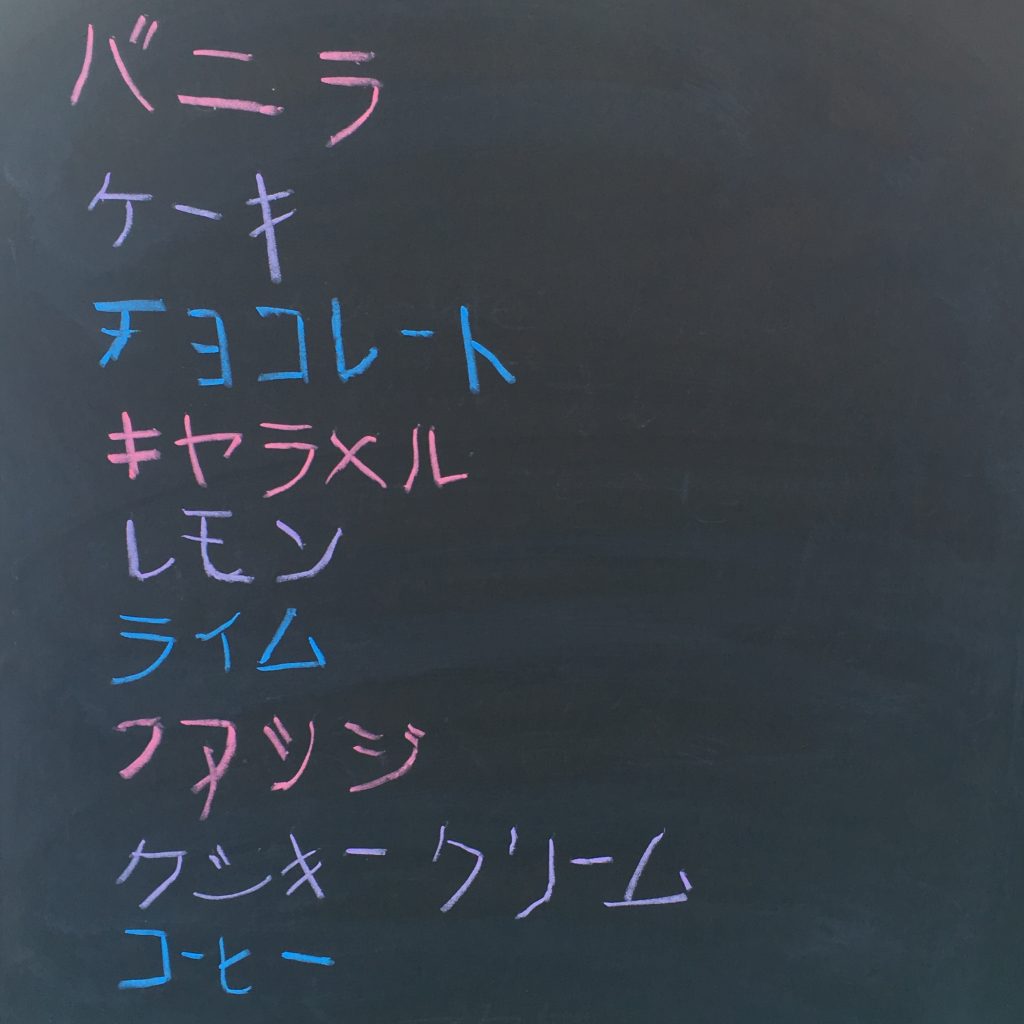 バニラ
ケーキ
チョコレート
キャラメル
レモン
ライム
ファッジ
クッキークリーム
コーヒー